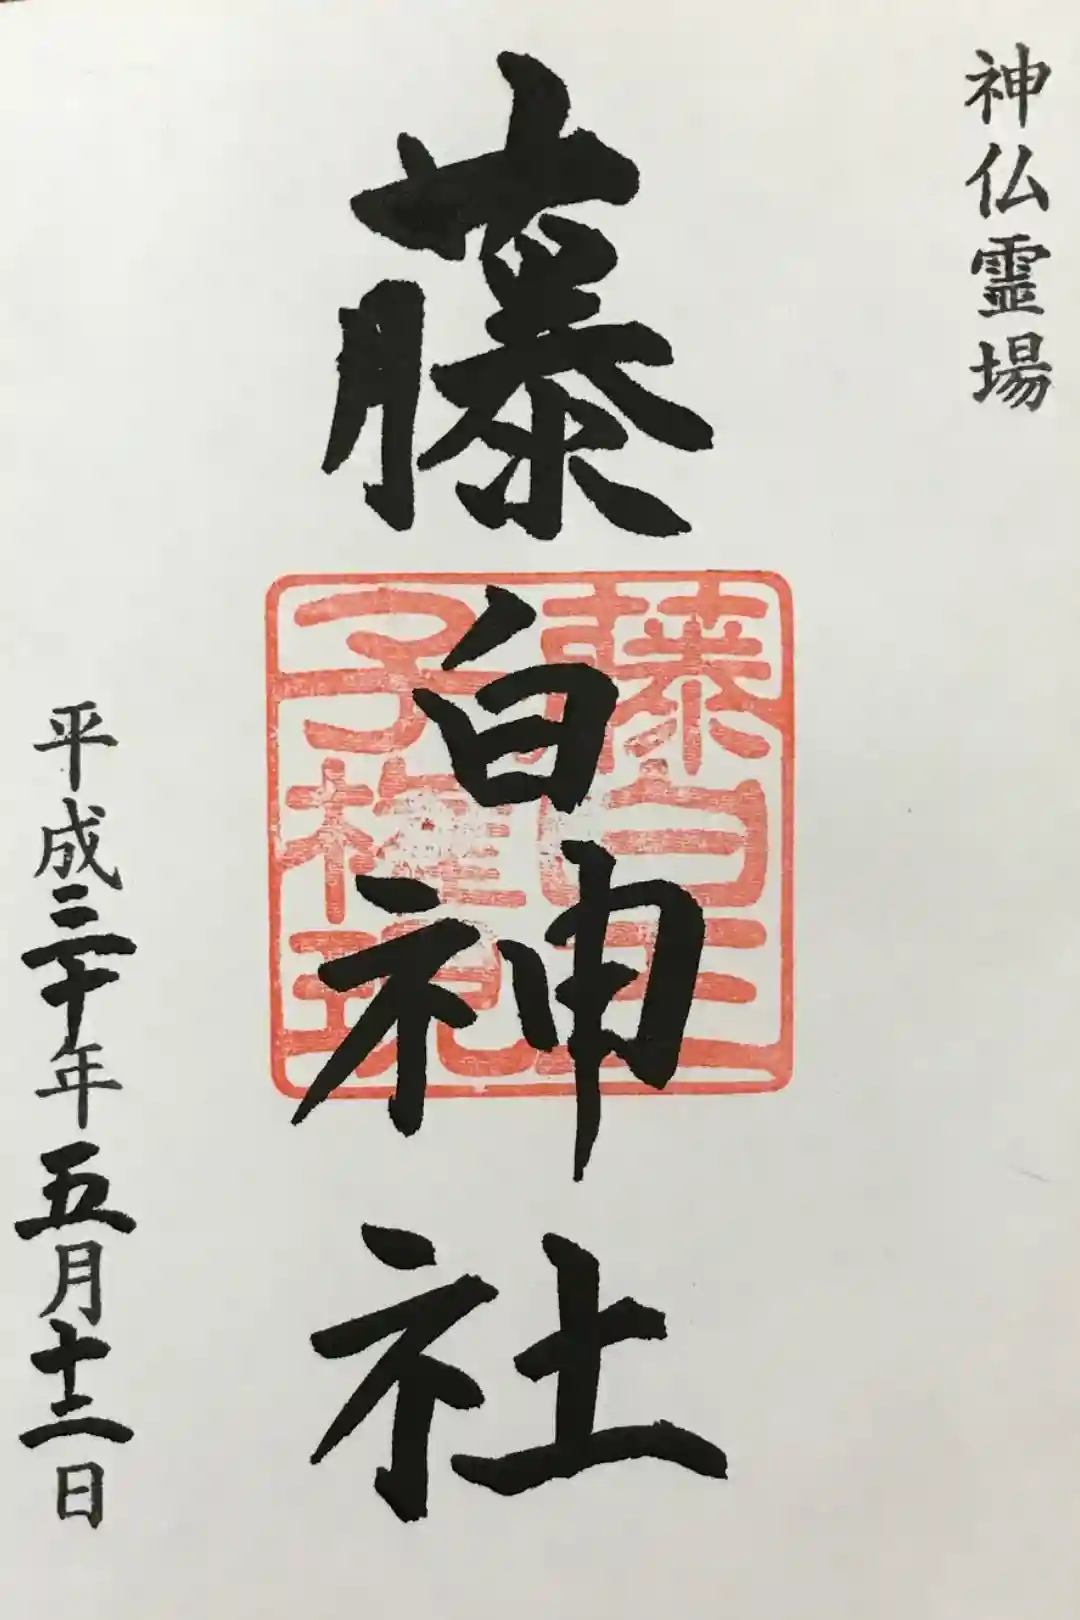 神仏霊場
藤白神社
藤白王
子権現
平成三十年五月十二日